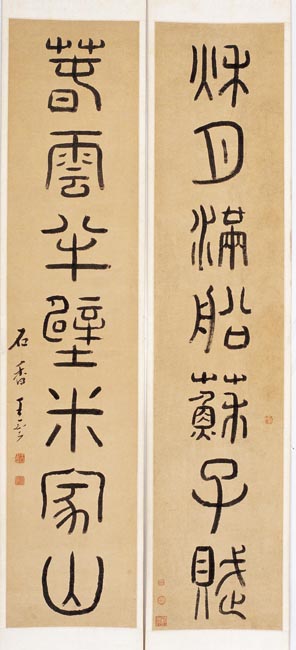 秌月滿船蘇子賦
萅雲半壁米家山
石香